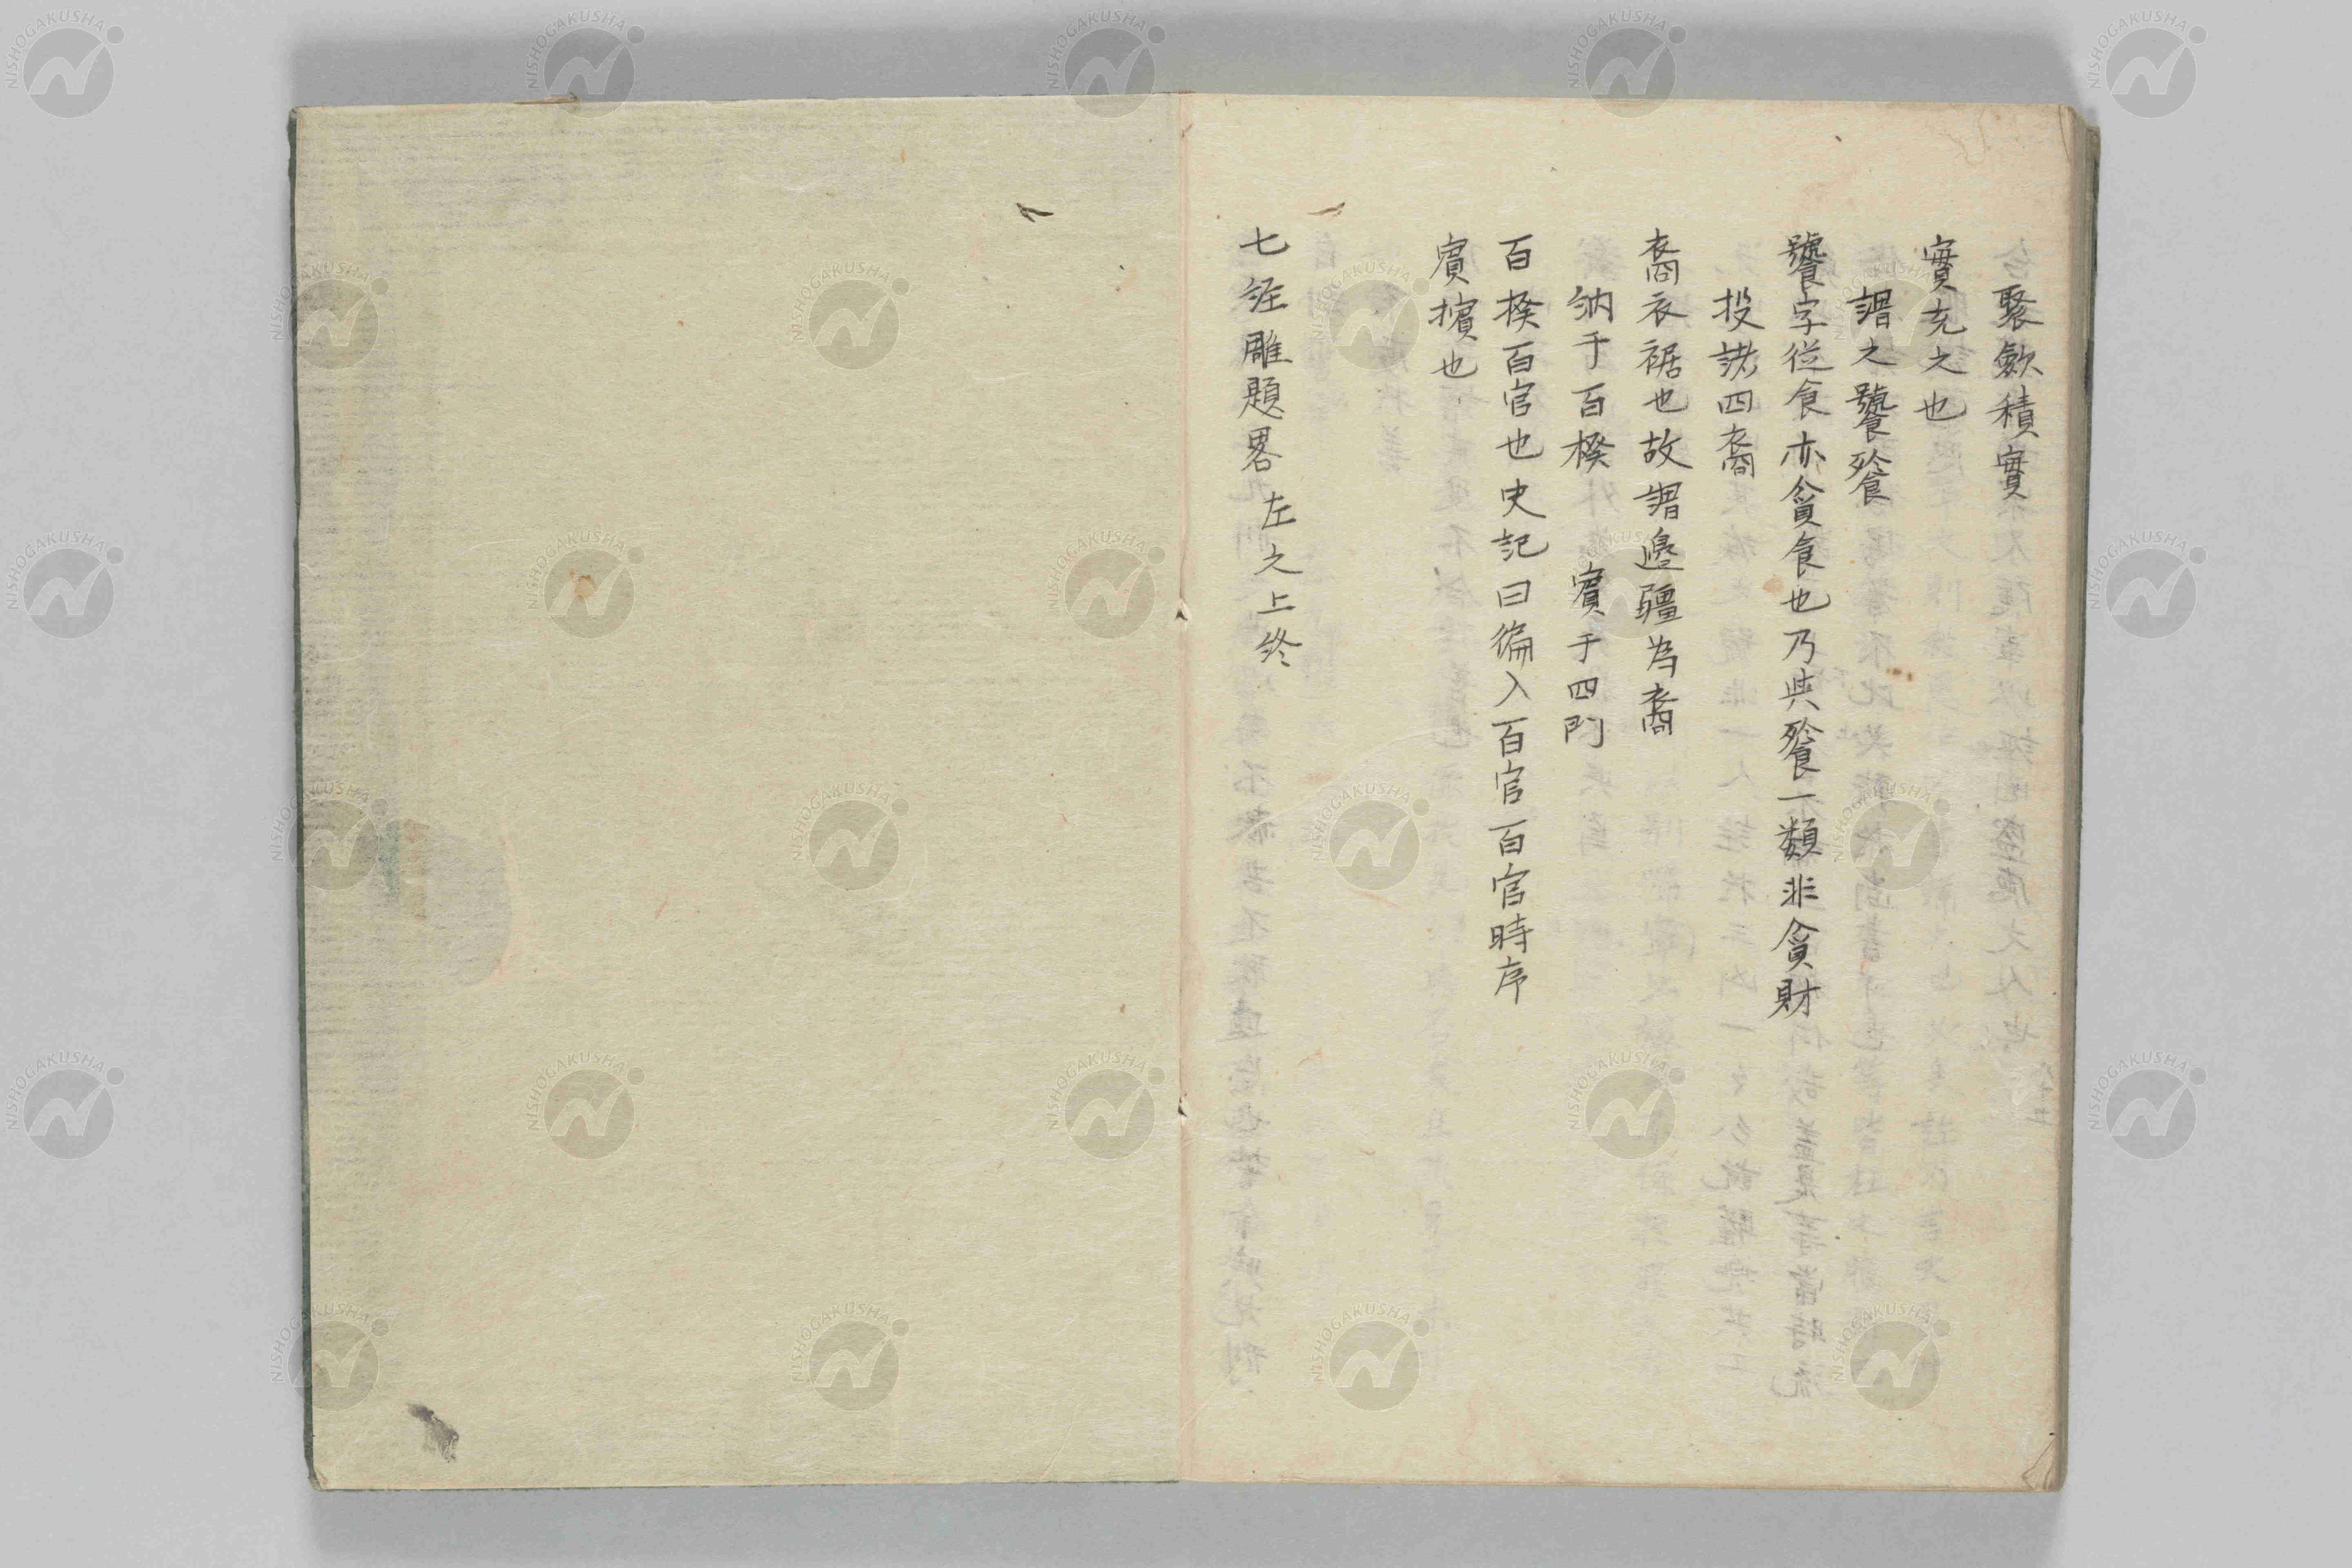 聚歛積實
實充之也
謂之饕餮
饕字從食亦貪食也乃與餮一類非貪財
投諸四裔
裔衣裾也故謂邊疆為裔
納于百揆　賓于四門
百揆百官也史記曰徧入百官百官時序
賓擯也
七經雕題畧　左之上終
NISHOGAKUSHA